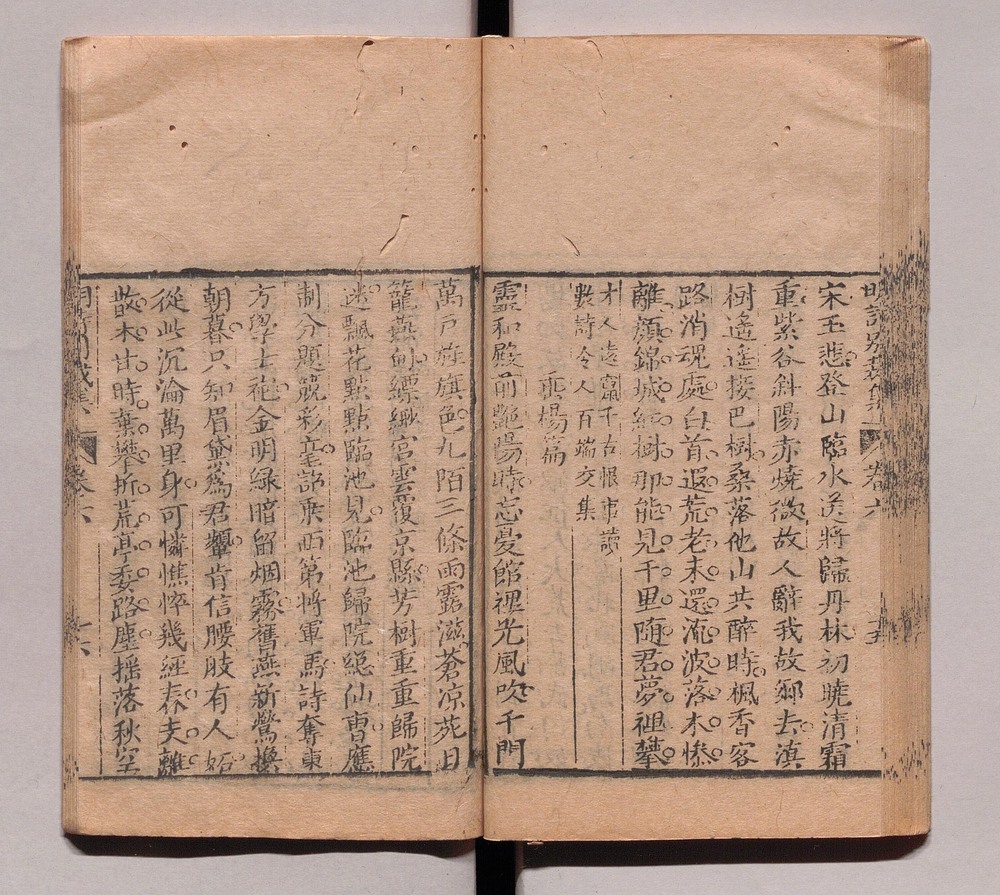 明詩別裁集 卷六 十五
宋玉悲登山臨水送將歸丹林初曉清霜
重紫谷斜陽赤燒微故人辭我故鄉去滇
樹遙遙接巴樹桑落他山共醉時楓香客
路消魂處白首遐荒老未還流波落木慘
離顏錦城紅樹那能見千里隨君夢裡攀
才人遠竄千古恨事讀
數詩令人百端交集
垂楊篇
靈和殿前艷陽時忘憂館裡光風吹千門
萬戶旌旗色九陌三條雨露滋蒼凉苑日
籠燕甸縹緲宮雲覆京縣芳樹重重歸院
迷飄花點點臨池見臨池歸院總仙曹應
制分題競彩毫詔乘西第將軍馬詩奪東
方學士袍金明緑暗留烟霧舊燕新鶯換
朝暮只知眉黛爲君顰肯信腰肢有人妬
從此沉淪萬里身可憐憔悴幾經春支離
散木甘時棄攀折荒亭委路塵揺落秋空
明詩別裁集 卷六 十六